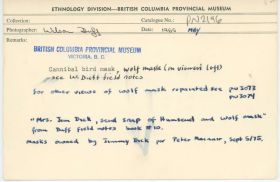 ETHNOLOGY DIVISION—BRITISH COLUMBIA PROVINCIAL MUSEUM
Collection: Catalogue No.: PN2196
Photographer: Wilson Duff 1955 MAY
Remarks:
BRITISH COLUMBIA PROVINCIAL MUSEUM
VICTORIA, B. C.
Cannibal bird mask, wolf mask (on viewers left)
see W. Duff field notes
for other views of wolf mask repainted see PN 3073
PN 3074
"Mrs. Jim Dick, send snap of Humseed and wolf mask"
from Duff field notes book #10.
masks owned by Jimmy Dick per Peter Macnair, Sept 5/75.